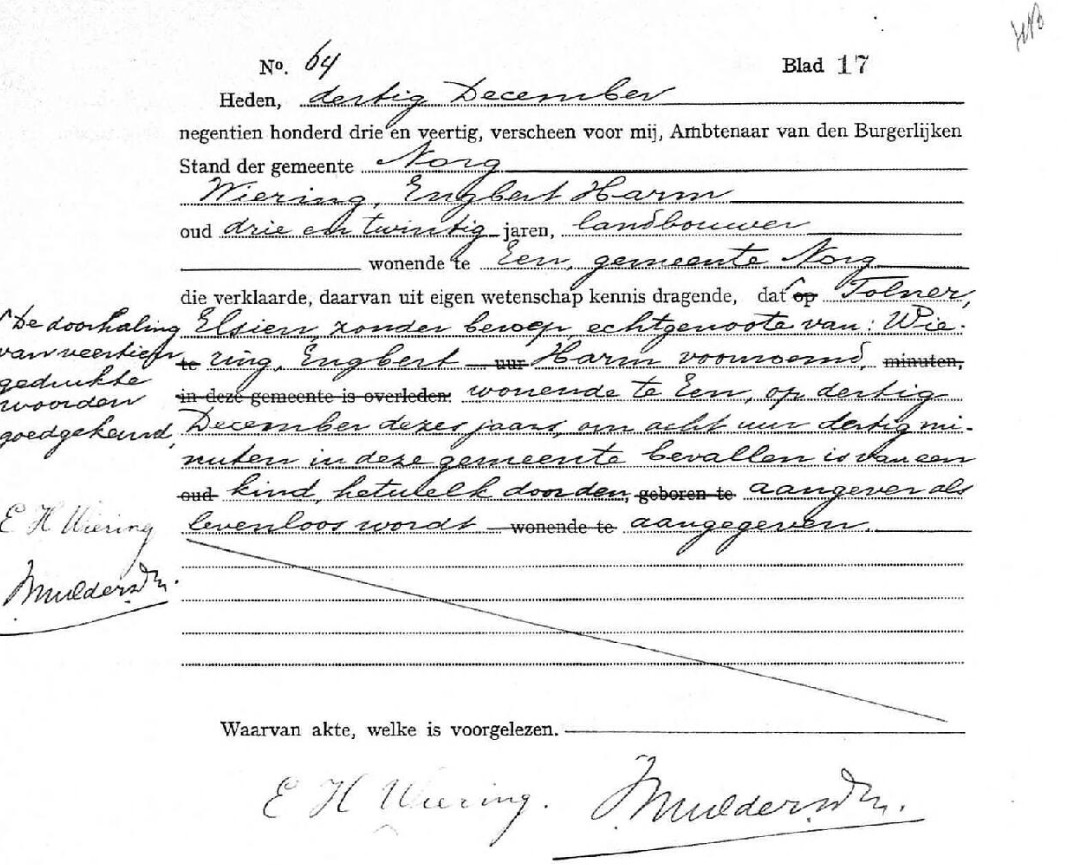 No. 64 Blad 17
Heden, dertig December
negentien honderd drie en veertig, verscheen voor mij, Ambtenaar van den Burgerlijken
Stand der gemeente Norg
Wiering, Engbert Harm
oud drie en twintig jaren, landbouwer
wonende te Een, gemeente Norg
die verklaarde, daarvan uit eigen wetenschap kennis dragende, dat op Tolner,
Elsien, zonder beroep, echtgenoote van: Wie-
te ring, Engbert uur Harm voornoemd, minuten,
in deze gemeente is overleden: wonende te Een, op dertig
December dezes jaars, om acht uur dertig mi-
nuten in deze gemeente bevallen is van een
oud kind, hetwelk door den, geboren te aangever als
levenloos wordt wonende te aangegeven.
De doorhaling
van veertien
gedrukte
woorden
goedgekeurd,
E H Wiering
Waarvan akte, welke is voorgelezen.
E H Wiering.